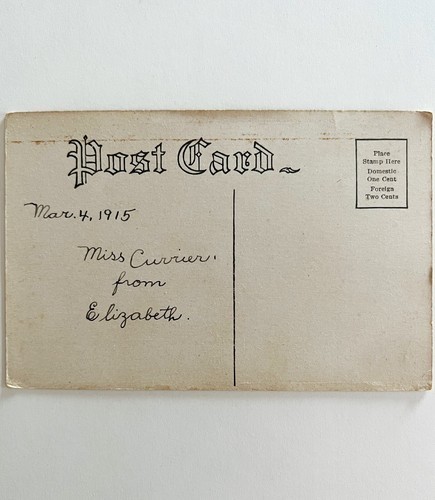 Post Card
Place
Stamp Here
Domestic
One Cent
Foreign
Two Cents
Mar. 4, 1915
Miss Currier.
from
Elizabeth.